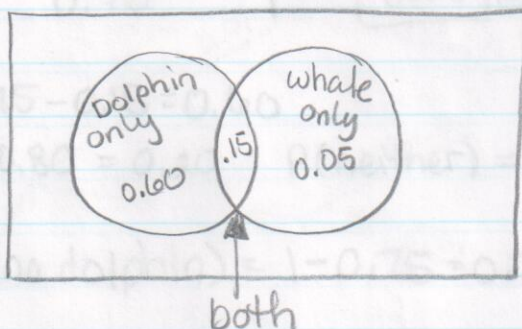 Dolphin
only
0.60
.15
whale
only
0.05
both